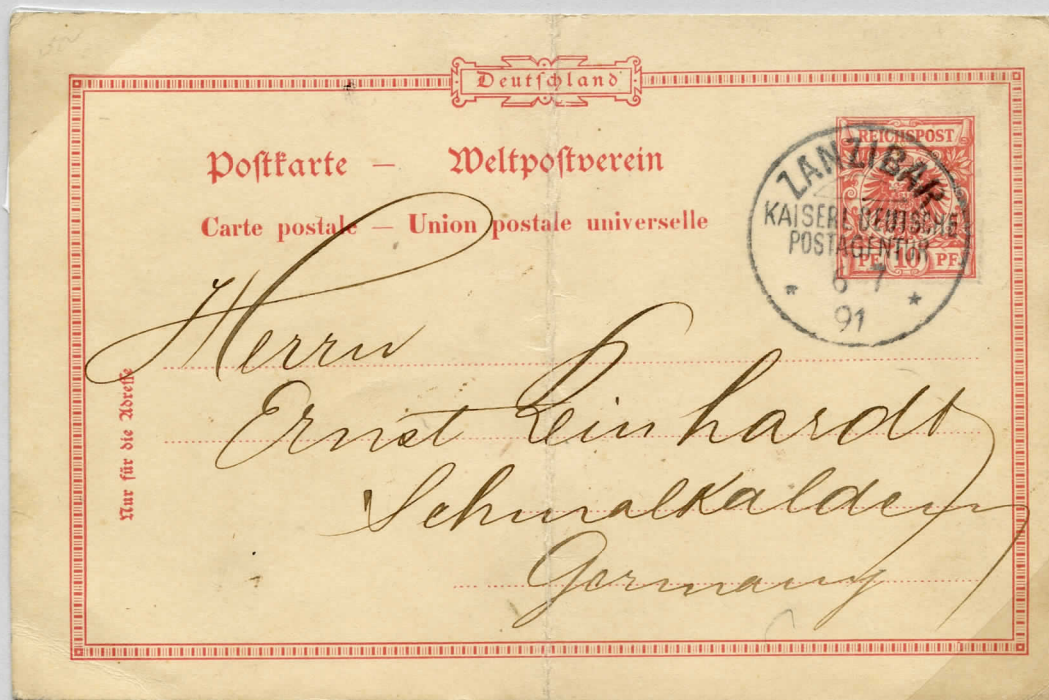 Deutschland
Postkarte — Weltpostverein
Carte postale — Union postale universelle
REICHSPOST
PF 10 PF
ZANZIBAR
KAISERL. DEUTSCHE
POSTAGENTUR
6 7
91
Herrn
Ernst Leinhardt
Schmalkalden
Germany
Nur für die Adresse